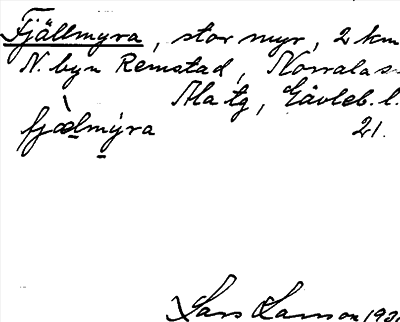 Fjällmyra, stor myr, 2 km
N. byn Remstad, Norrala s
Ala tg, Gävleb. l.
fjæ̀lmýra 21.
Lars Larson 193